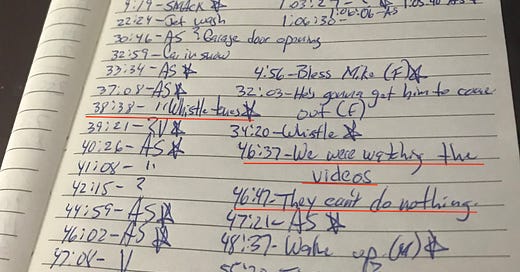 22:24 - Jet wash
30:46 - AS ? Garage door opening
32:59 - Car in snow
33:34 - AS ☆
37:08 - AS ☆
38:38 - "Whistle tunes ☆
39:21 - ?V ☆
40:26 - AS ☆
41:08 - "
42:15 - ?
44:59 - AS ☆
46:02 - AS ☆
47:04 - V
1:06:30 -
4:56 - Bless Mike (F) ☆
32:03 - He's gonna get him to come
out (F)
34:20 - Whistle ☆
46:37 - We were watching the
videos
46:47 - They can't do nothing.
47:21 - AS ☆
48:37 - Wake up (M) ☆